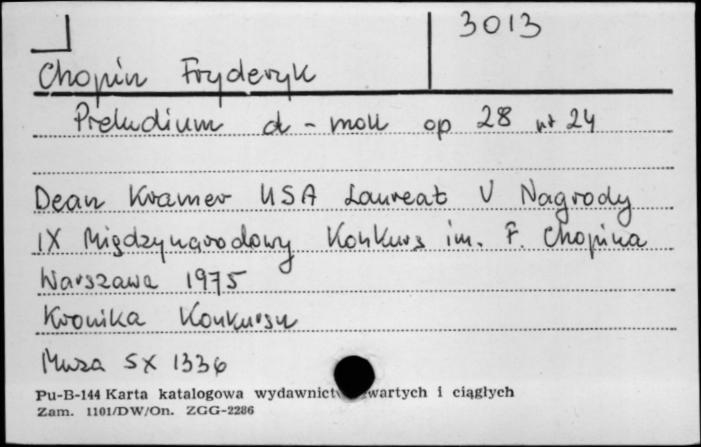 3013
Chopin Fryderyk
Preludium d-moll op 28 nr 24
Dean Kramer USA Laureat V Nagrody
IX Międzynarodowy Konkurs im. F. Chopina
Warszawa 1975
Kronika Konkursu
Muza SX 1336
Pu-B-144 Karta katalogowa wydawnictw zwartych i ciągłych
Zam. 1101/DW/On. ZGG-2286